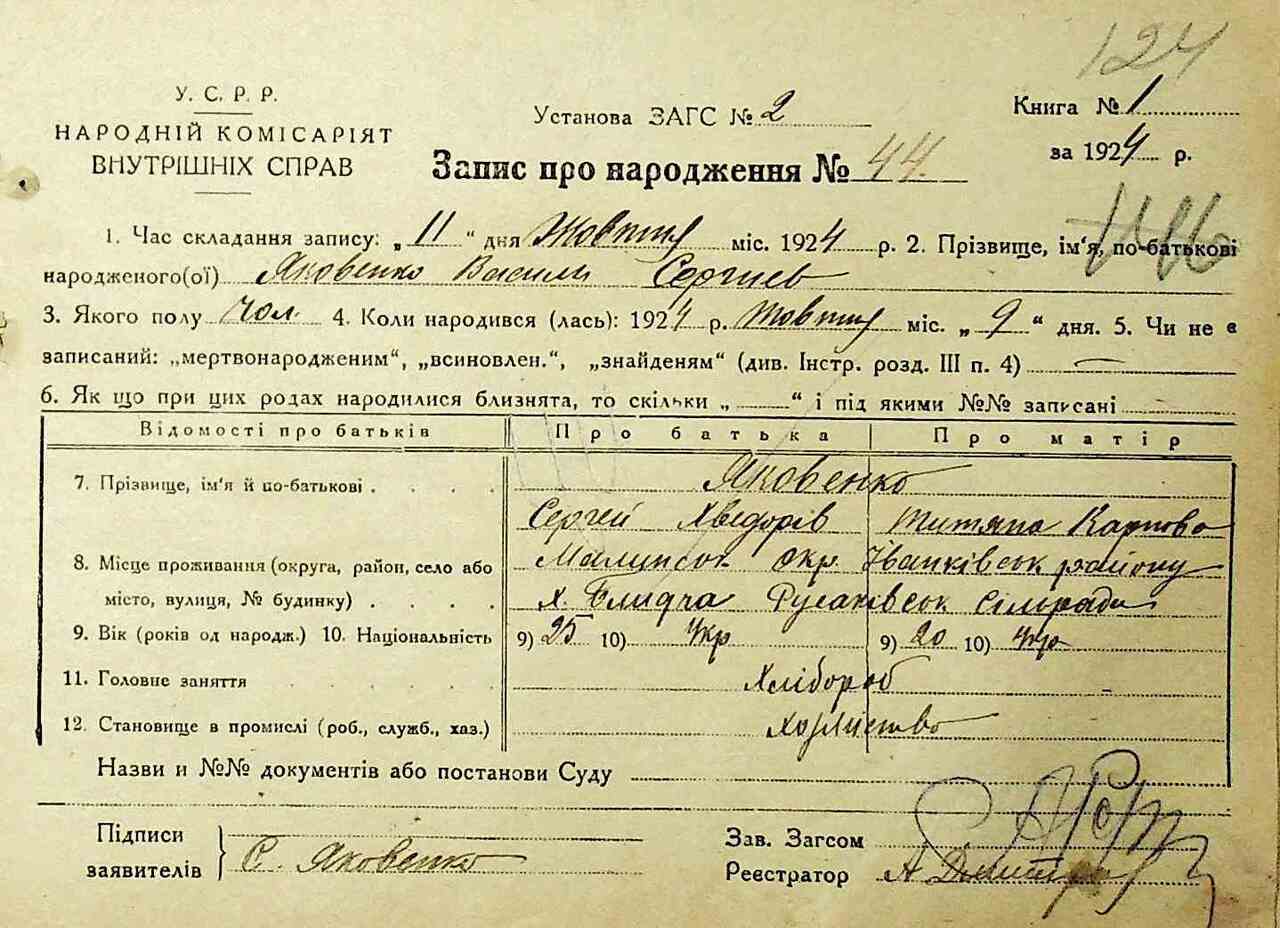 124
У. С. Р. Р.
НАРОДНІЙ КОМІСАРІЯТ
ВНУТРІШНІХ СПРАВ
Установа ЗАГС № 2
Книга № 1
за 1924 р.
Запис про народження № 44.
1. Час складання запису: „ 11 “ дня Жовтня міс. 1924 р. 2. Прізвище, ім'я, по-батькові
народженого(ої) Яковенко Василь Сергиев
3. Якого полу чол. 4. Коли народився (лась): 1924 р. Жовтня міс. „ 9 “ дня. 5. Чи не є
записаний: „мертвонародженим“, „всиновлен.“, „знайденям“ (див. Інстр. розд. III п. 4) —
6. Як що при цих родах народилися близнята, то скільки „ “ і під якими №№ записані
Відомості про батьків Про батька Про матір
7. Прізвище, ім'я й по-батькові . . . . Яковенко
Сергей Хведорів Титяна Карпова
8. Місце проживання (округа, район, село або Малинськ окр. Іванківськ району
місто, вулиця, № будинку) . . . . х. Блидча Русаківськ Сільради
9. Вік (років од народж.) 10. Національність 9) 25 10) Укр 9) 20 10) Укр
11. Головне заняття . . . . . Хлібороб
12. Становище в промислі (роб., служб., хаз.)
Назви и №№ документів або постанови Суду
Підписи
заявителів
С. Яковенко
Зав. Загсом
Реєстратор А